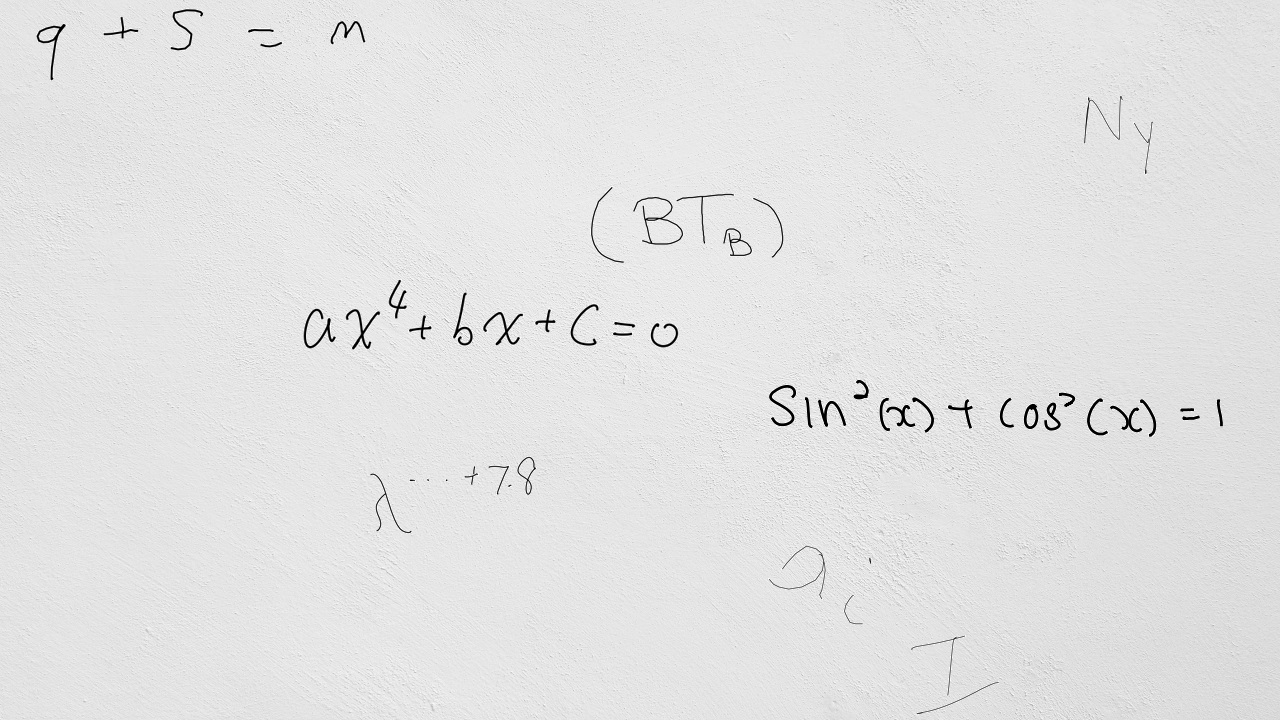 q + s = m
N_y
(BT_B)
ax^4 + bx + c = 0
sin^2(x) + cos^2(x) = 1
λ^{... + 7.8}
a_i
I